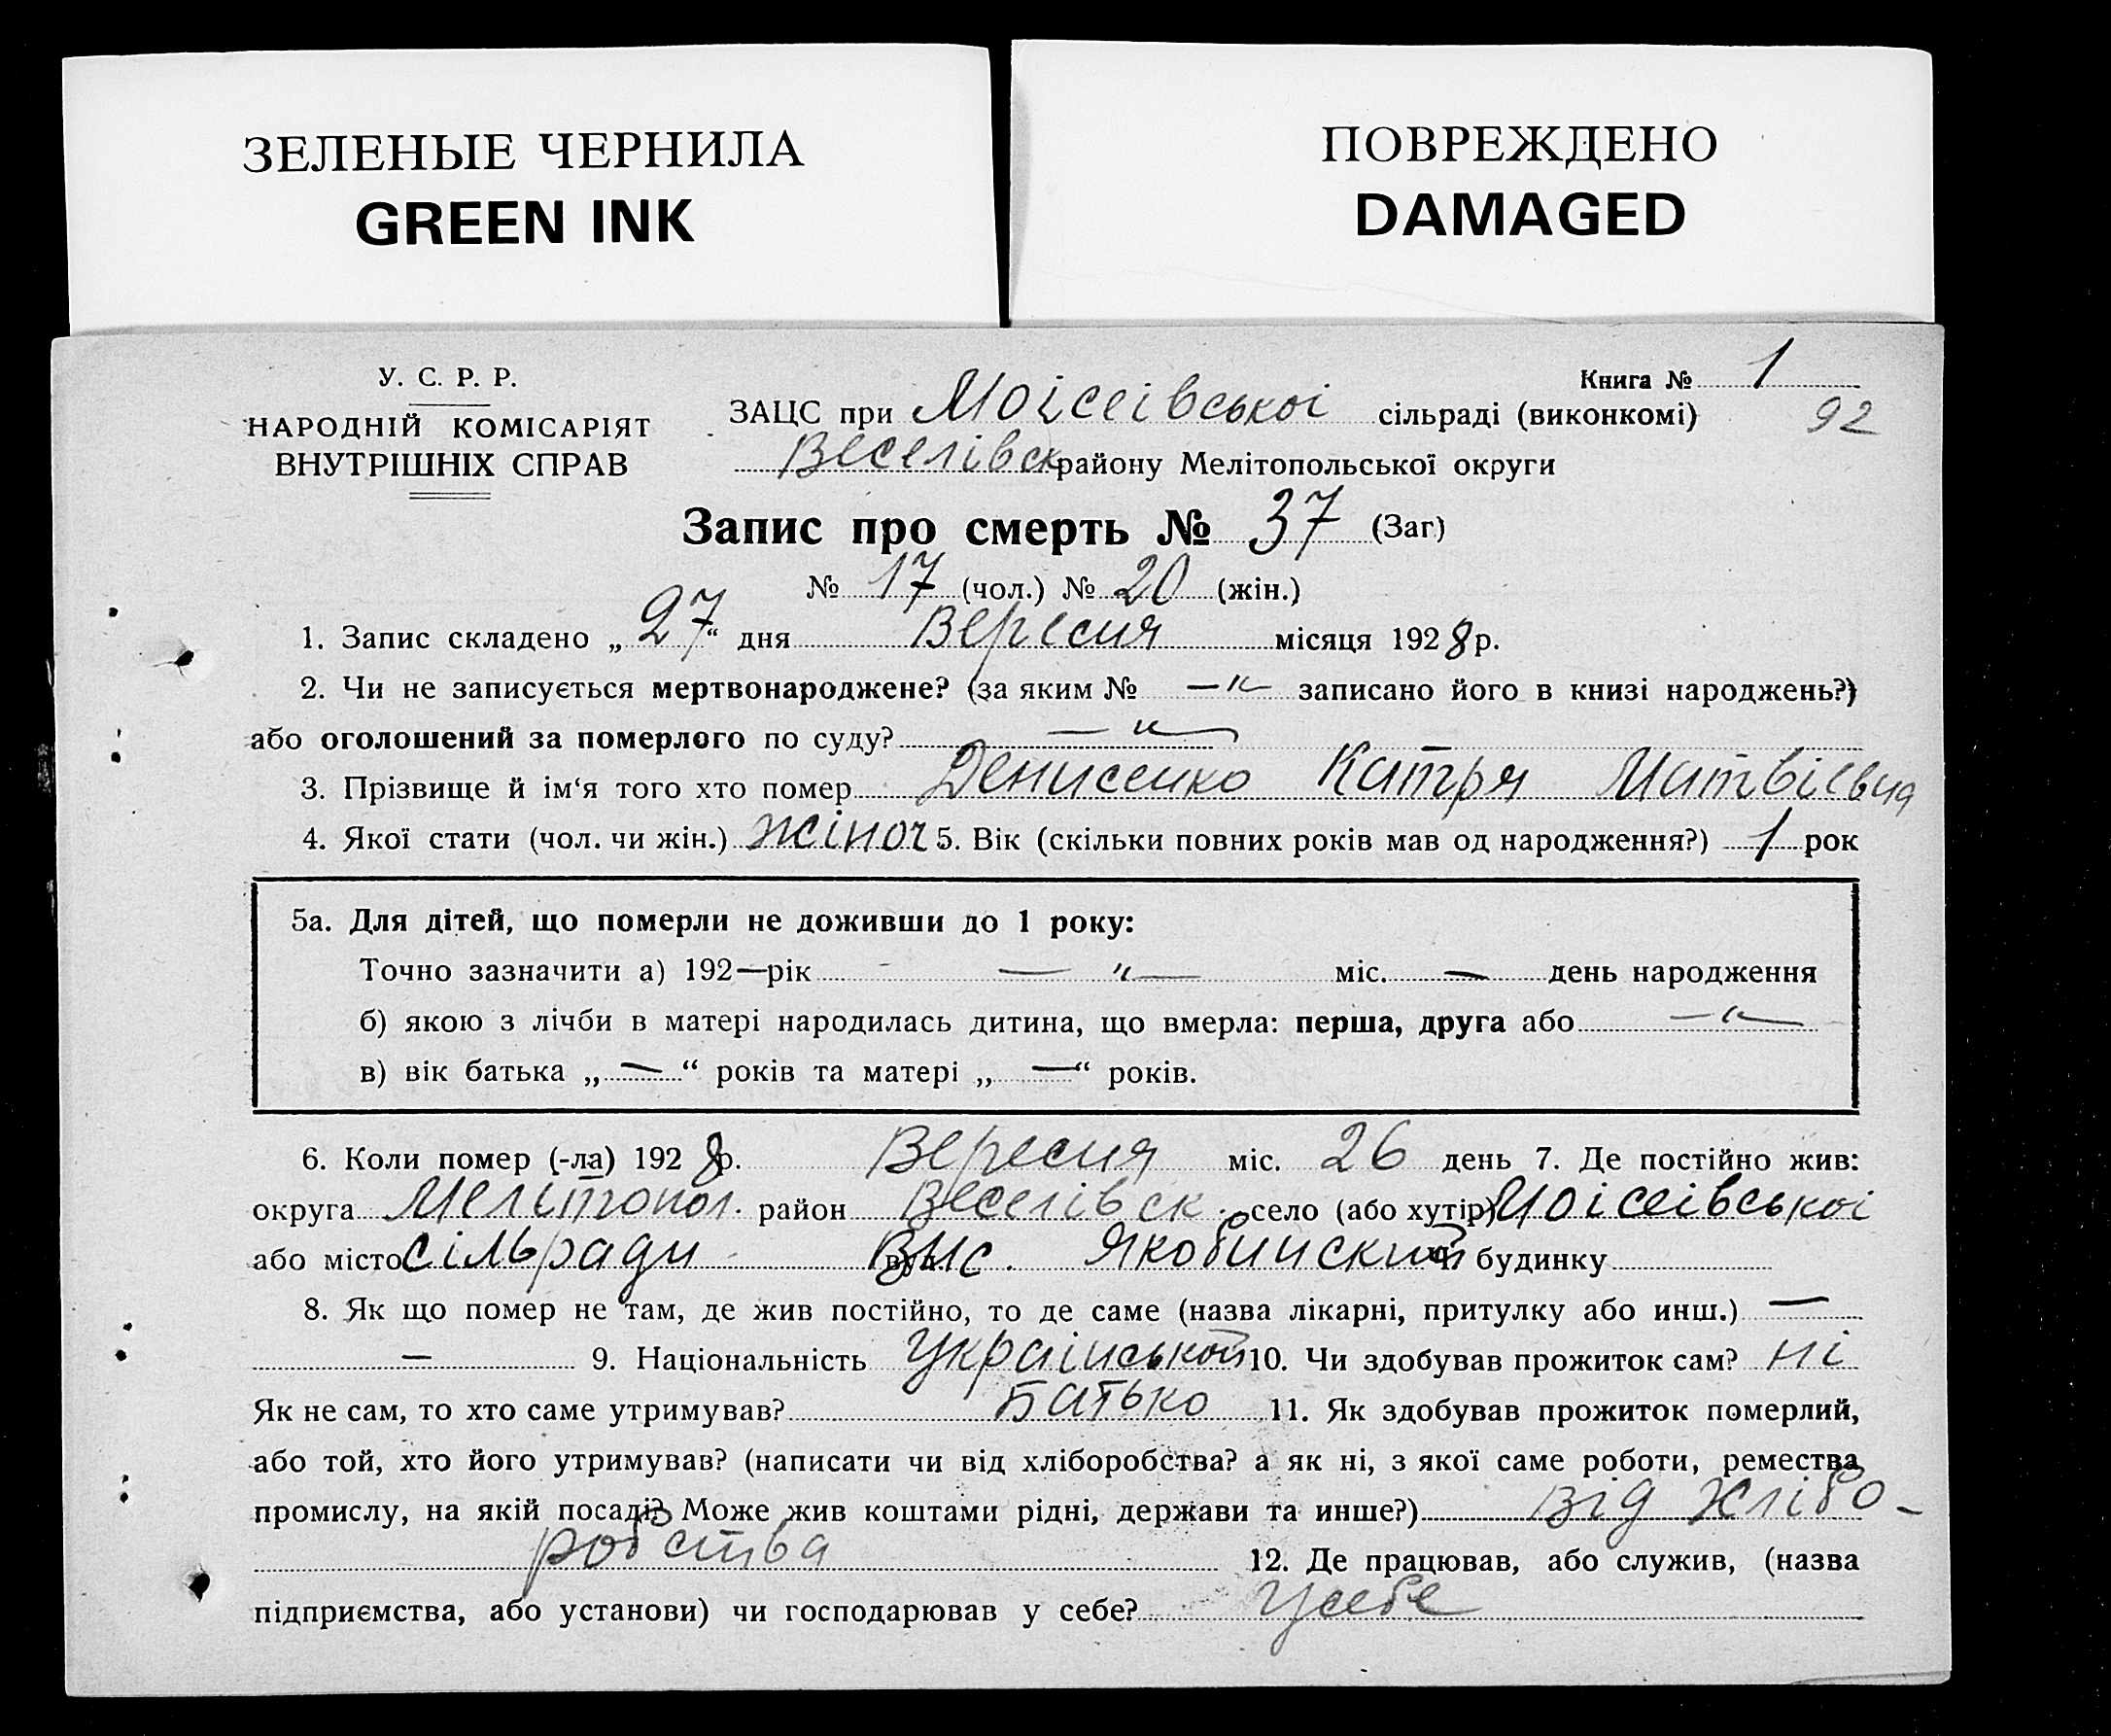 ЗЕЛЕНЫЕ ЧЕРНИЛА
GREEN INK
ПОВРЕЖДЕНО
DAMAGED
У. С. Р. Р.
НАРОДНІЙ КОМІСАРІЯТ
ВНУТРІШНІХ СПРАВ
Книга № 1
92
ЗАЦС при Моісеівської сільраді (виконкомі)
Веселівск району Мелітопольської округи
Запис про смерть № 37 (Заг)
№ 17 (чол.) № 20 (жін.)
1. Запис складено „27“ дня Вересня місяця 1928 р.
2. Чи не записується мертвонароджене? (за яким № —„— записано його в книзі народжень?)
або оголошений за померлого по суду? —„—
3. Прізвище й ім‘я того хто помер Денисенко Катря Матвіевна
4. Якої стати (чол. чи жін.) жіноч 5. Вік (скільки повних років мав од народження?) 1 рок
5а. Для дітей, що померли не доживши до 1 року:
Точно зазначити а) 192—рік — „— міс. — день народження
б) якою з лічби в матері народилась дитина, що вмерла: перша, друга або —„—
в) вік батька „—“ років та матері „—“ років.
6. Коли помер (-ла) 1928 р. Вересня міс. 26 день 7. Де постійно жив:
округа Мелітопол. район Веселівск. село (або хутір) Моісеівської
або місто сільради вис. Якобинский будинку
8. Як що помер не там, де жив постійно, то де саме (назва лікарні, притулку або инш.) —
— 9. Національність Українськой 10. Чи здобував прожиток сам? ні
Як не сам, то хто саме утримував? Батько 11. Як здобував прожиток померлий,
або той, хто його утримував? (написати чи від хліборобства? а як ні, з якої саме роботи, ремества
промислу, на якій посаді? Може жив коштами рідні, держави та инше?) Від хлібо-
робства 12. Де працював, або служив, (назва
підприємства, або установи) чи господарював у себе? У себе